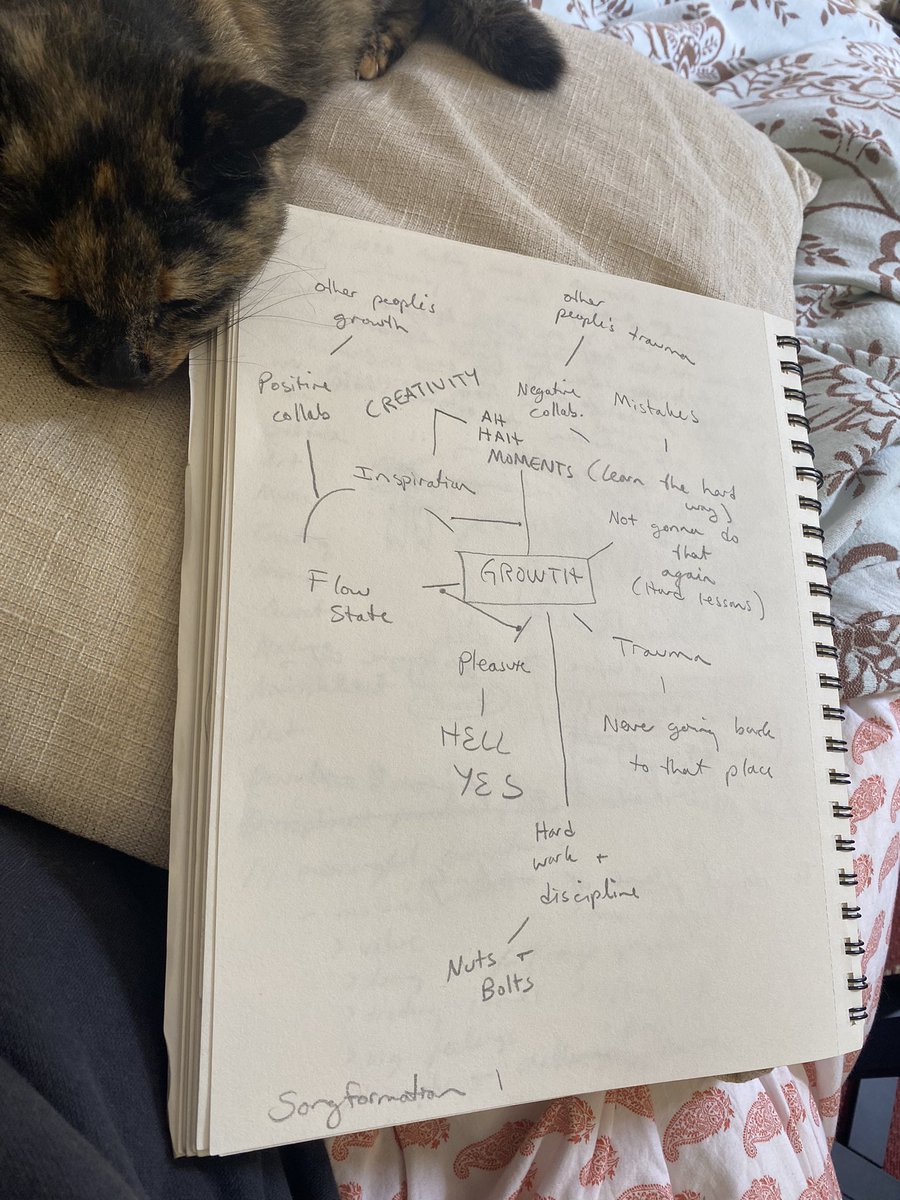 other people's
growth
other
people's trauma
Positive
collab
CREATIVITY
AH
HAH
MOMENTS
Negative
collab.
Mistakes
(learn the hard
way)
Inspiration
Not gonna do
that
again
(Hard lessons)
GROWTH
Flow
State
Pleasure
HELL
YES
Trauma
Never going back
to that place
Hard
work +
discipline
Nuts +
Bolts
Songformation